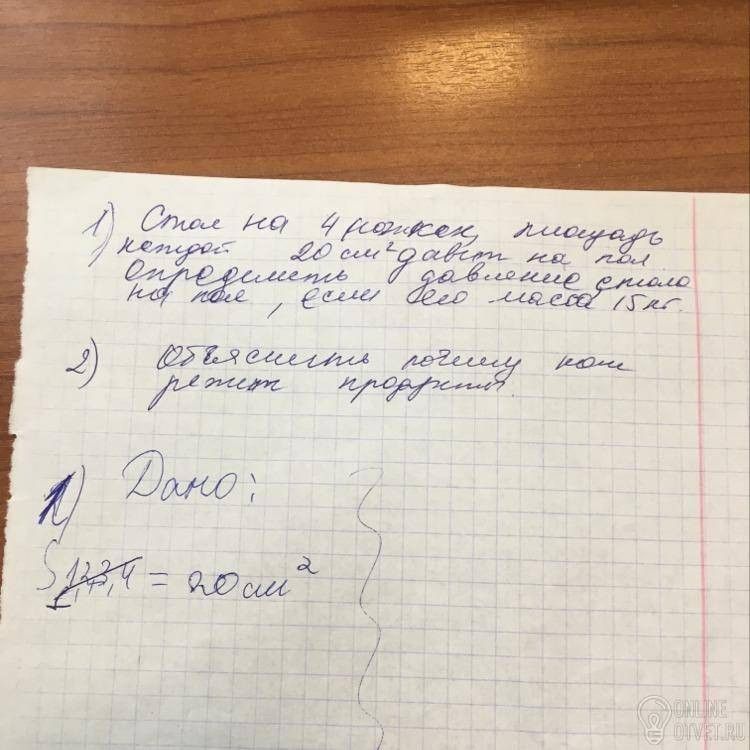 1) Стол на 4 ножках, площадь
каждой 20 см² давит на пол.
Определить давление стола
на пол, если его масса 15 кг.
2) Объяснить почему нож
режит продукты.
1) Дано:
S₁ = 20 см²
ONLINE
OTVET.RU